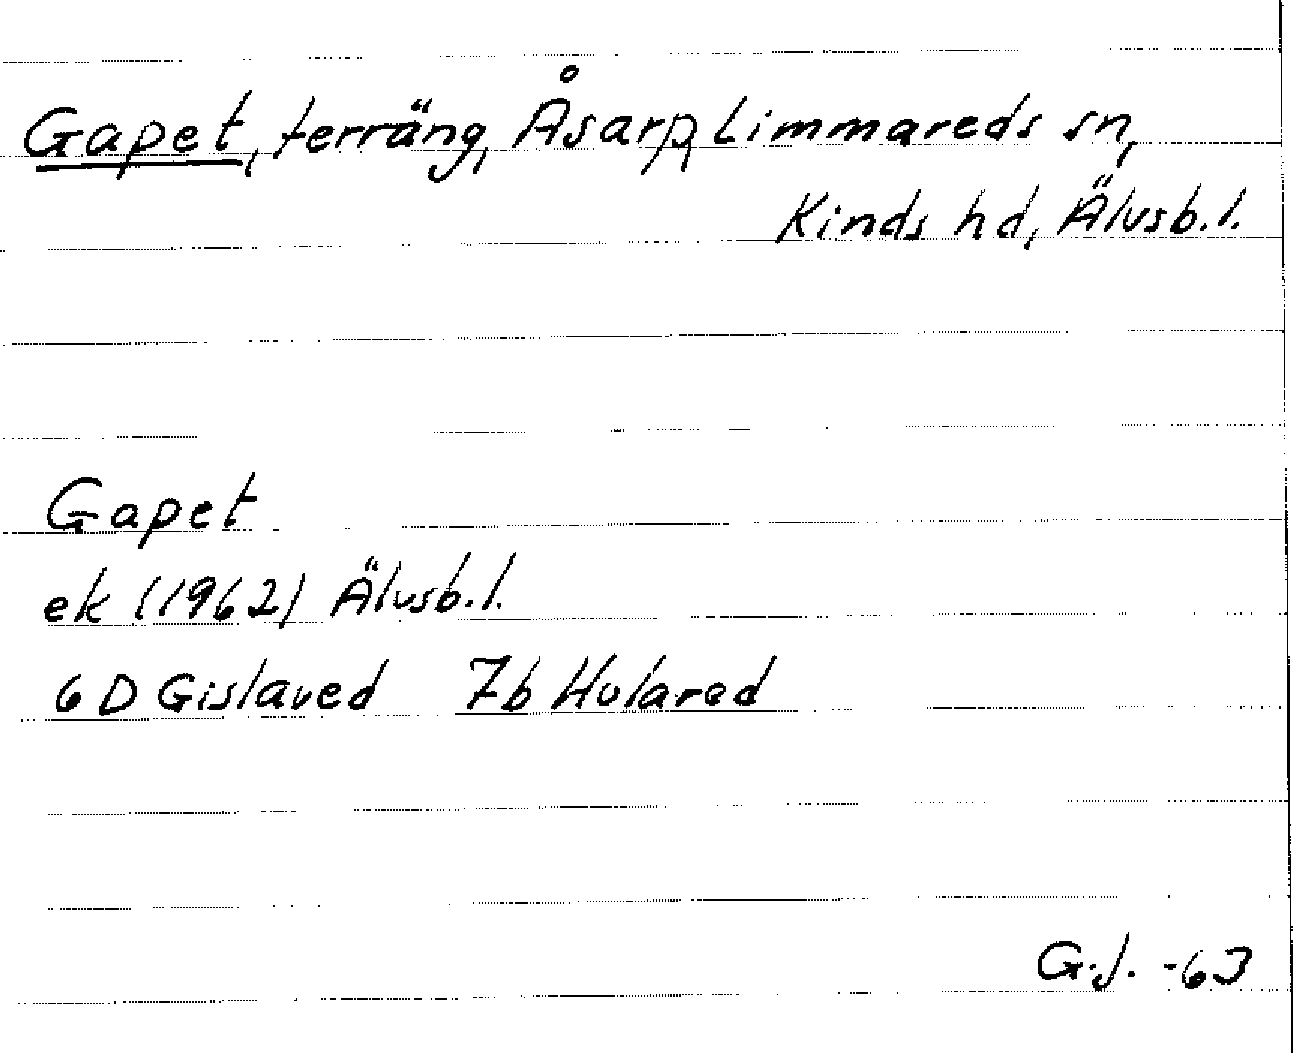 Gapet, terräng, Åsarp, Limmareds sn,
Kinds hd, Älvsb.l.
Gapet
ek (1962) Älvsb.l.
6D Gislaved 7b Hulared
G.J. -63